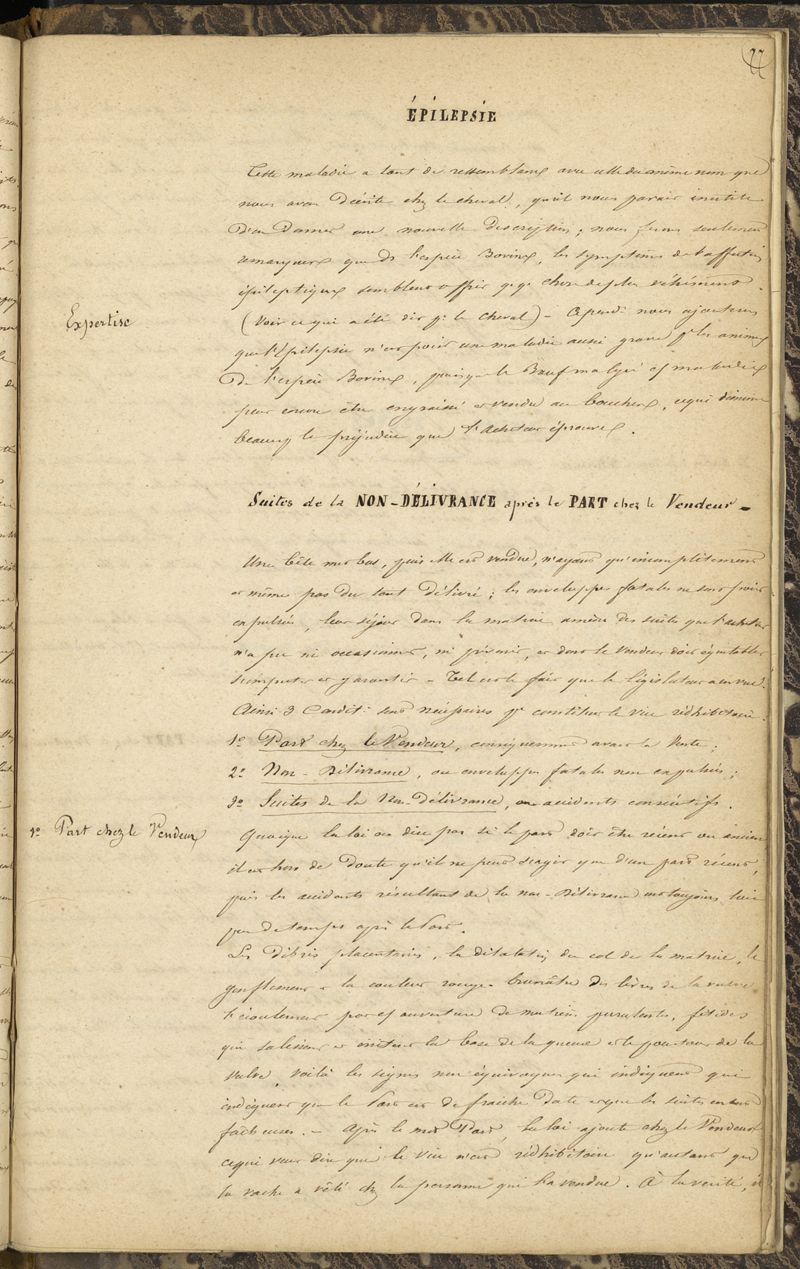 77
ÉPILEPSIE
Cette maladie a tant de ressemblance avec celle du même nom que
nous avons Décrite chez le cheval, qu'il nous parait inutile
D'en Donner une nouvelle Description; nous ferons seulement
remarquer que ds l'espèce Bovine, les symptômes de l'affection
épileptique semblent offrir qq chose de plus véhément.
Expertise
(Voir ce qui a été dit pr le Cheval) - nous ajouterons
que l'Épilepsie n'est point une maladie aussi grave pr les animx
De l'espèce Bovine, puisque le Bœuf malgré cette maladie
peut encore être engraissé et vendu au boucher, ce qui diminue
beaucoup le préjudice que l'acheteur éprouve.
Suites de la NON-DÉLIVRANCE après le PART chez le Vendeur -
Une bête met bas, puis elle est vendue, n'ayant qu'incomplètement
et même pas du tout Délivré; les enveloppes fœtales ne sont point
expulsées, leur séjour dans la matrice amène des suites que l'acheteur
n'a pu ni occasionner, ni prévenir, et dont le vendeur doit équitablemt
s'imputer et garantir - Tel est le fait que le législateur a en vue.
Ainsi 3 Condit: sont nécessaires pr constituer le vice rédhibitoire:
1º Part chez le Vendeur, conséquemment avant la Vente;
2º Non-Délivrance, ou enveloppes fœtales non expulsées;
3º Suites de la Non-Délivrance, ou accidents consécutifs.
1º Part chez le Vendeur
Quoique la loi ne dise pas si le part doit être récent ou ancien
il est hors de Doute qu'il ne peut s'agir que d'un part récent,
puis les accidents résultant de la non-Délivrance ont toujours lieu
peu de temps après le Part.
Les Débris placentaires, la dilatation du col de la matrice, le
gonflement et la couleur rouge-brunâtre des lèvres de la vulve
l'écoulement par cette ouverture De matières purulentes, fétides
qui salissent et irritent la base de la queue et le pourtour de la
vulve, voilà les signes non équivoques qui indiquent que
indiquent que le Part est de fraîche Date et que les suites en sont
fâcheuses. - Après le mot Part, la loi ajoute chez le Vendeur
ce qui veut dire que le vice n'est rédhibitoire qu'autant que
la vache a vêlé chez la personne qui l'a vendue. À la vérité, il